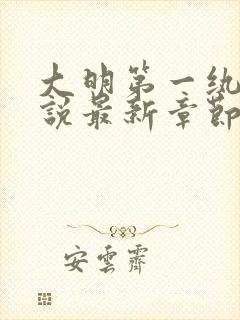 大明第一纨
說最新章節
安雲齋